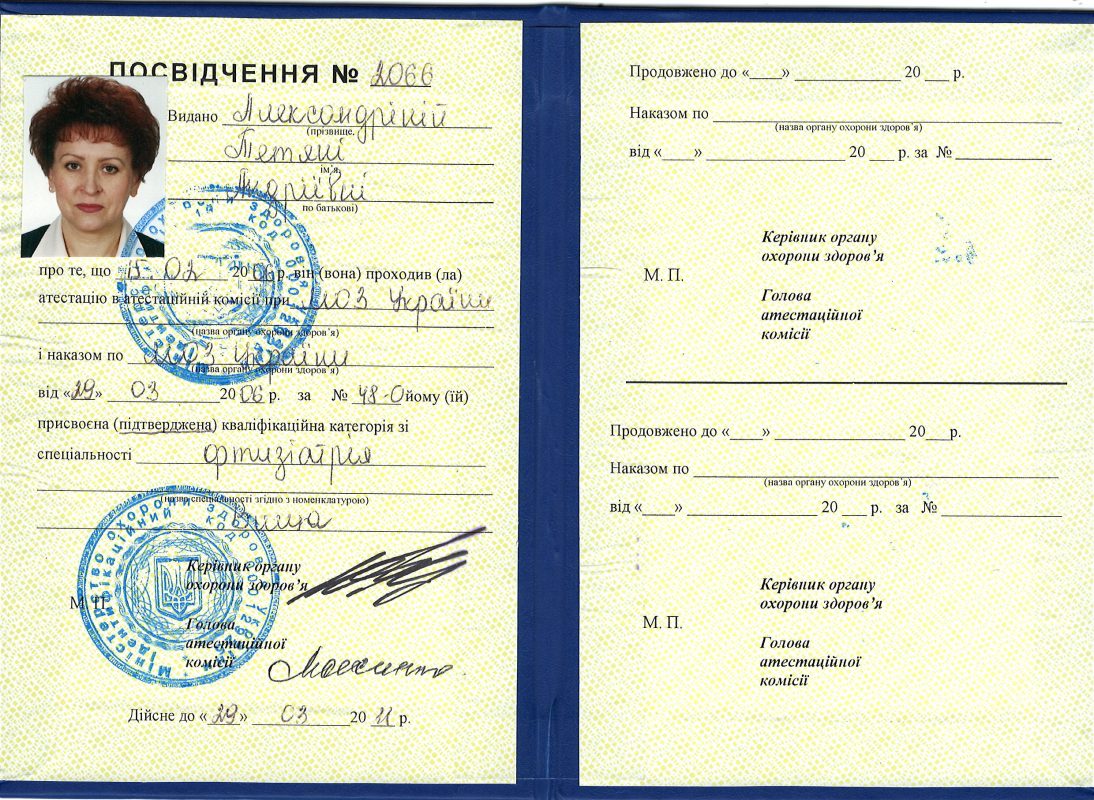 ПОСВІДЧЕННЯ № 2066
Видано Александріній
(прізвище,
Тетяні
ім'я,
Андріївні
по батькові)
про те, що 15. 02 2006 р. він (вона) проходив (ла)
атестацію в атестаційній комісії при МОЗ України
(назва органу охорони здоров'я)
і наказом по МОЗ України
(назва органу охорони здоров'я)
від «29» 03 2006 р. за № 48-О йому (їй)
присвоєна (підтверджена) кваліфікаційна категорія зі
спеціальності фтизіатрія
(назва спеціальності згідно з номенклатурою)
вища
Керівник органу
охорони здоров'я
М. П.
Голова
атестаційної
комісії
Дійсне до «29» 03 2011 р.
Міністерство охорони здоров'я України
Ідентифікаційний код 00012925
Продовжено до «____» ____________ 20 ___ р.
Наказом по ____________
(назва органу охорони здоров'я)
від «____» ____________ 20 ___ р. за № ____________
Керівник органу
охорони здоров'я
М. П.
Голова
атестаційної
комісії
Продовжено до «____» ____________ 20___р.
Наказом по ____________
(назва органу охорони здоров'я)
від «____» ____________ 20 ___ р. за № ____________
Керівник органу
охорони здоров'я
М. П.
Голова
атестаційної
комісії